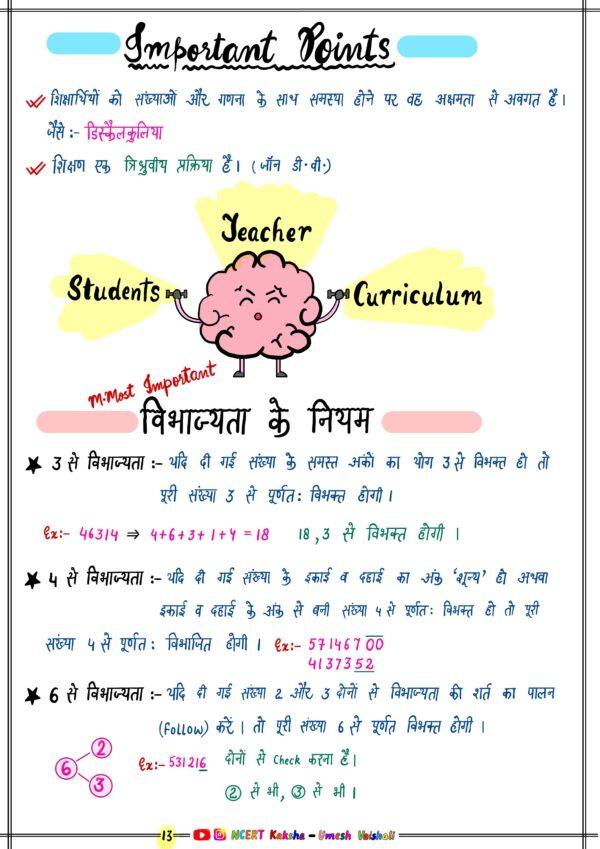 Important Points
शिक्षार्थियों को संख्याओं और गणना के साथ समस्या होने पर वह अक्षमता से अवगत है।
जैसे :- डिस्कैलकुलिया
शिक्षण एक त्रिध्रुवीय प्रक्रिया है। (जॉन डी.वी.)
Teacher
Students
Curriculum
M.Most Important
विभाज्यता के नियम
★ 3 से विभाज्यता :- यदि दी गई संख्या के समस्त अंको का योग 3 से विभक्त हो तो
पूरी संख्या 3 से पूर्णतः विभक्त होगी।
Ex:- 46314 ⇒ 4+6+3+1+4 = 18 18, 3 से विभक्त होगी।
★ 4 से विभाज्यता :- यदि दी गई संख्या के इकाई व दहाई का अंक 'शून्य' हो अथवा
इकाई व दहाई के अंक से बनी संख्या 4 से पूर्णतः विभक्त हो तो पूरी
संख्या 4 से पूर्णतः विभाजित होगी। Ex:- 57146700
4137352
★ 6 से विभाज्यता :- यदि दी गई संख्या 2 और 3 दोनों से विभाज्यता की शर्त का पालन
(Follow) करें। तो पूरी संख्या 6 से पूर्णत विभक्त होगी।
6 2 3
Ex:- 531216 दोनों से Check करना है।
2 से भी, 3 से भी।
13 NCERT Kaksha - Umesh Vaishali